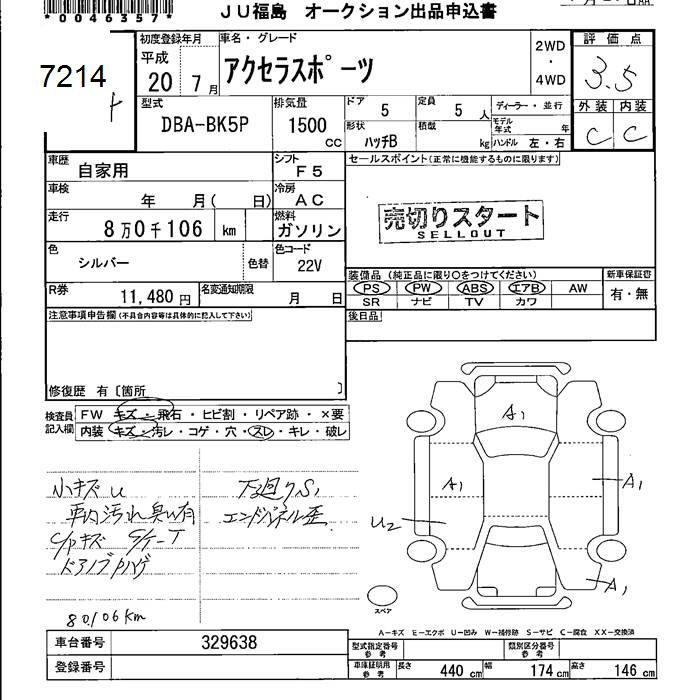 *0046357*
JU福島 オークション出品申込書
7214
初度登録年月
平成
20 7月
車名・グレード
アクセラスポーツ
2WD
・
4WD
評価点
3.5
外装 内装
C C
型式
DBA-BK5P
排気量
1500 CC
ドア 5
定員 5 人
ディーラー・並行
モデル年式 年
形状 ハッチB
積載 kg
ハンドル 左・右
車歴 自家用
シフト F5
セールスポイント(正常に機能するものに限ります)
車検 年 月( 日)
冷房 AC
走行 8万0千106 km
燃料 ガソリン
売切りスタート
SELLOUT
色 シルバー 色替
色コード 22V
装備品(純正品に限り○をつけてください)
新車保証書
PS PW ABS エアB AW
有・無
SR ナビ TV カワ
R券 11,480円
名変通知期限 月 日
後日品
注意事項申告欄(不具合内容等は具体的に記入して下さい)
修復歴 有〔箇所 〕
検査員記入欄
FW キズ・飛石・ヒビ割・リペア跡・×要
内装 キズ・汚レ・コゲ・穴・スレ・キレ・破レ
小キズU
車内汚れ臭い有
C/Pキズ
ドアノブハゲ
下廻りS1
エンドパネル歪
80106km
A1
A1
A1
U2
A1
スペア
A-キズ E-エクボ U-凹み W-補修跡 S-サビ C-腐食 XX-交換済
車台番号 329638
登録番号
型式指定番号 参考
類別区分番号 参考
車庫証明用 参考
長さ 440 cm
幅 174 cm
高さ 146 cm